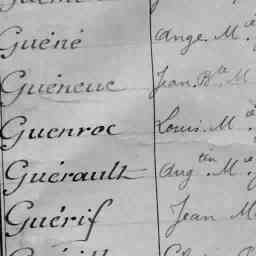 Guéné Ange. M.ie
Guéneuc Jean. Bte. M
Guenroc Louis. M.ie
Guérault Augtin M.ie
Guérif Jean M